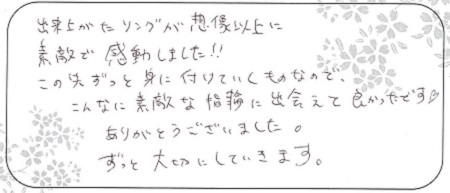 出来上がたリングが想像以上に
素敵で感動しました!!
この先ずっと身に付けていくものなので、
こんなに素敵な指輪に出会えて良かったです♡
ありがとうございました。
ずっと大切にしていきます。